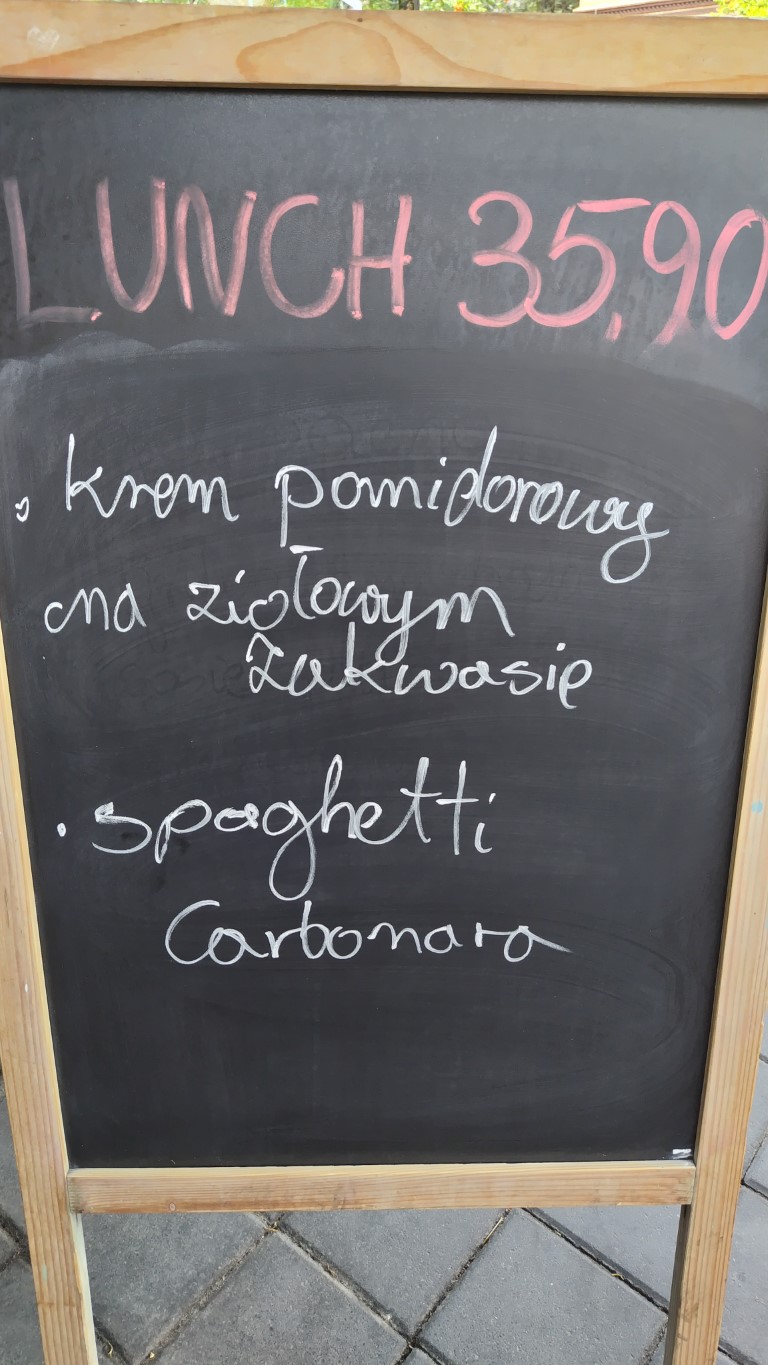 LUNCH 35,90
• krem pomidorowy
na ziołowym
zakwasie
• spaghetti
Carbonara